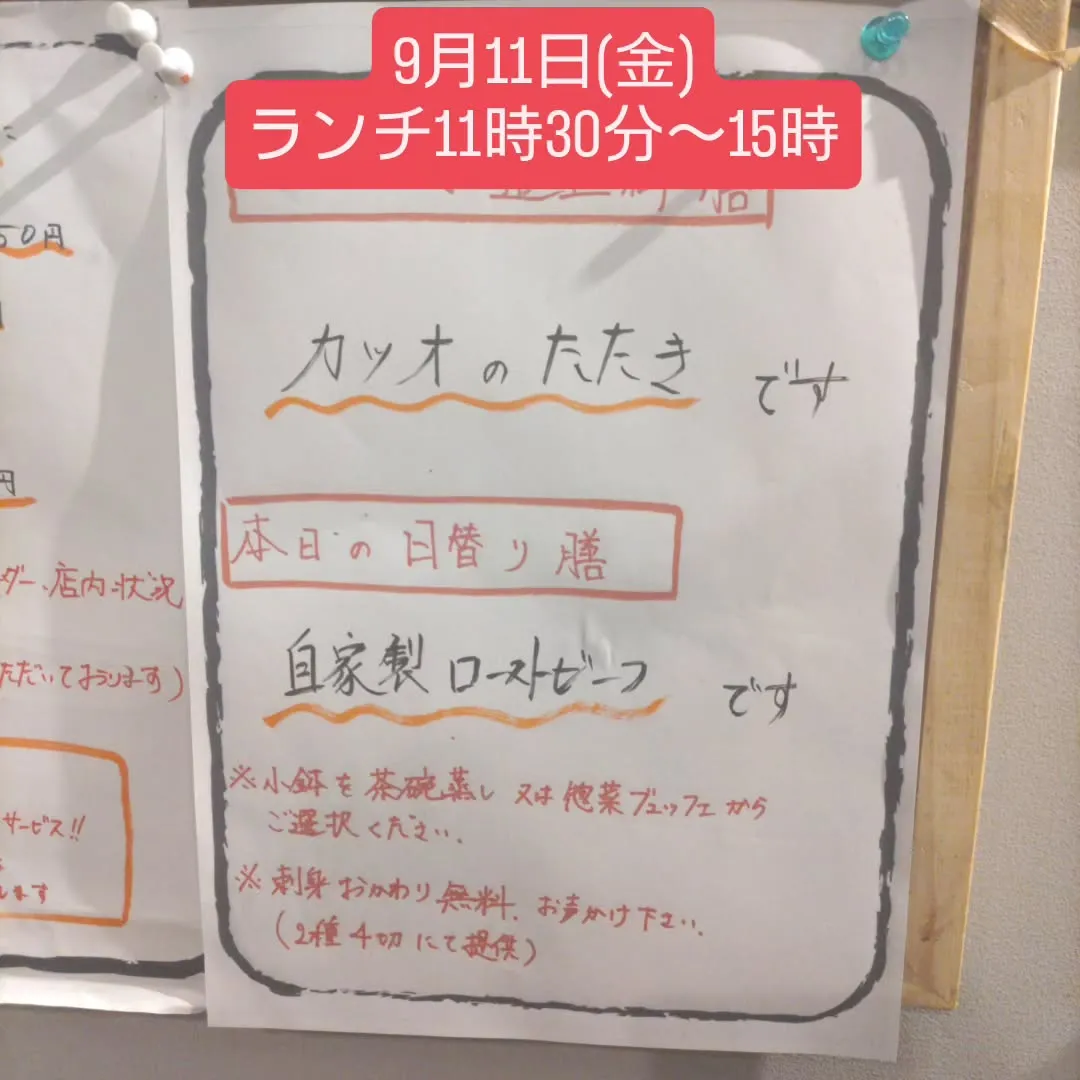 9月11日(金)
ランチ11時30分～15時
膳
カツオのたたき です
本日の日替り膳
自家製ローストビーフ です
※小鉢を茶碗蒸し又は惣菜ブュッフェから
ご選択ください.
※刺身おかわり無料. お声かけ下さい.
(2種4切にて提供)
50円
円
ダー、店内状況
ただいております)
サービス!!
します